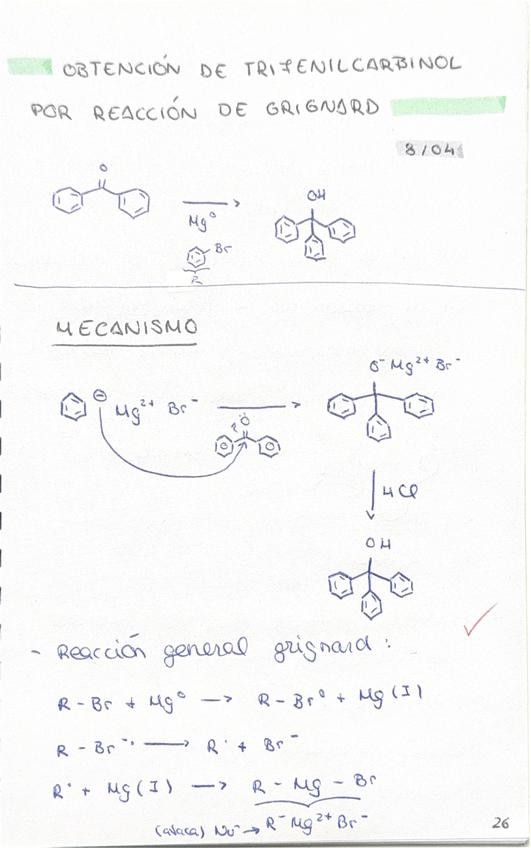 OBTENCIÓN DE TRIFENILCARBINOL
POR REACCIÓN DE GRIGNARD
8/04
O
OH
Mg⁰
Br
R
MECANISMO
O⁻ Mg²⁺ Br⁻
⊖ Mg²⁺ Br⁻
O
HCl
OH
- Reacción general grignard:
R-Br + Mg⁰ → R-Br⁰ + Mg(I)
R-Br⁻· → R· + Br⁻
R· + Mg(I) → R-Mg-Br
(ataca) Nu⁻ → R⁻ Mg²⁺ Br⁻
26